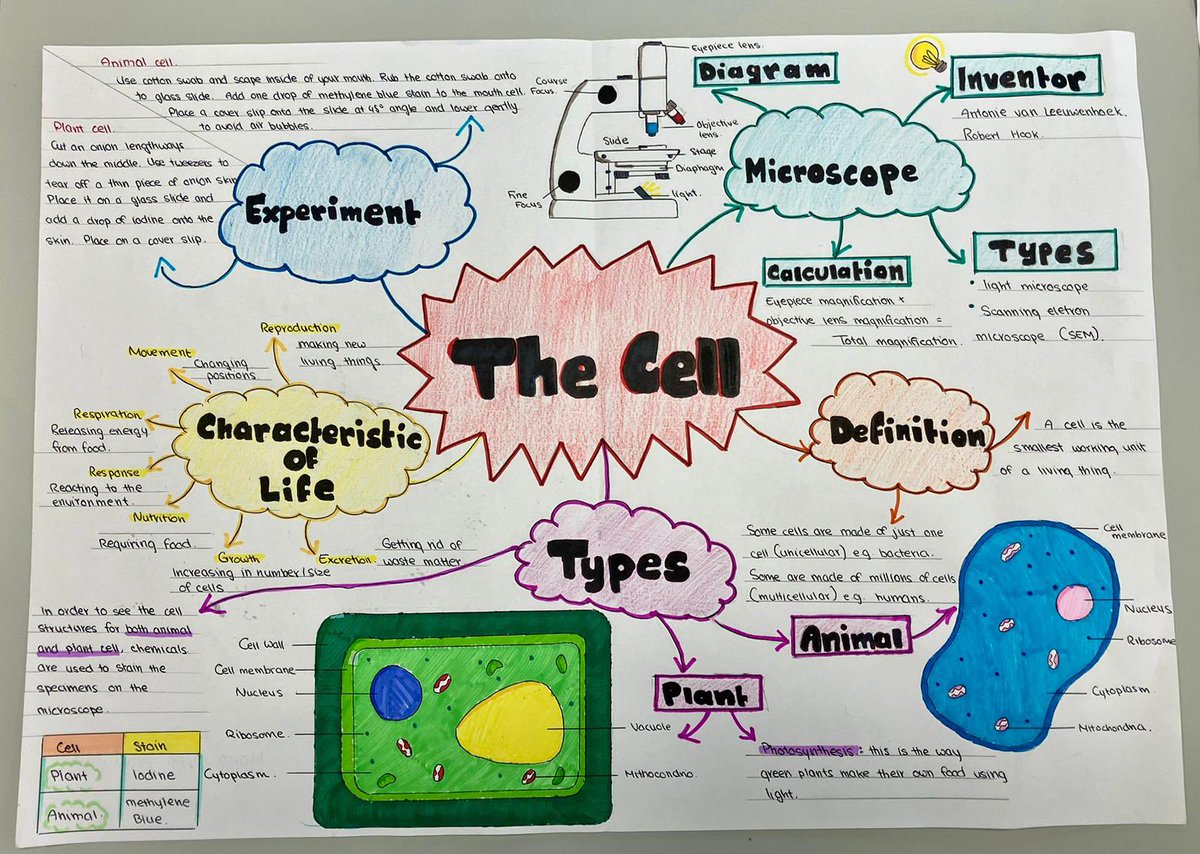 Animal cell.
Use cotton swab and scape inside of your mouth. Rub the cotton swab onto
to glass slide. Add one drop of methylene blue stain to the mouth cell.
Place a cover slip onto the slide at 45° angle and lower gently
to avoid air bubbles.
Plant cell.
Cut an onion lengthways
down the middle. Use tweezers to
tear off a thin piece of onion skin
Place it on a glass slide and
add a drop of iodine onto the
skin. Place on a cover slip.
Experiment
Eyepiece lens.
Course
Focus.
Objective
lens.
Slide
Stage
Diaphragm
light.
Fine
Focus
Diagram
Inventor
Antonie van Leeuwenhoek.
Robert Hook.
Microscope
Calculation
Eyepiece magnification ×
objective lens magnification =
Total magnification.
Types
• light microscope
• Scanning eletron
microscope (SEM).
The Cell
Reproduction
making new
living things
Movement
Changing
positions
Respiration
Releasing energy
from food.
Response
Reacting to the
environment.
Nutrition
Requiring food.
Growth
Increasing in number/size
of cells
Excretion
Getting rid of
waste matter
Characteristic
of
Life
Definition
A cell is the
smallest working unit
of a living thing.
Some cells are made of just one
cell (unicellular) e.g. bacteria.
Some are made of millions of cells
(multicellular) e.g. humans.
Types
In order to see the cell
structures for both animal
and plant cell, chemicals
are used to stain the
specimens on the
microscope.
Cell Stain
Plant Iodine
Animal methylene
Blue.
Cell wall
Cell membrane
Nucleus
Ribosome.
Cytoplasm.
Vacuole
Mithocondria
Plant
Photosynthesis: this is the way
green plants make their own food using
light.
Animal
Cell
membrane
Nucleus
Ribosome
Cytoplasm